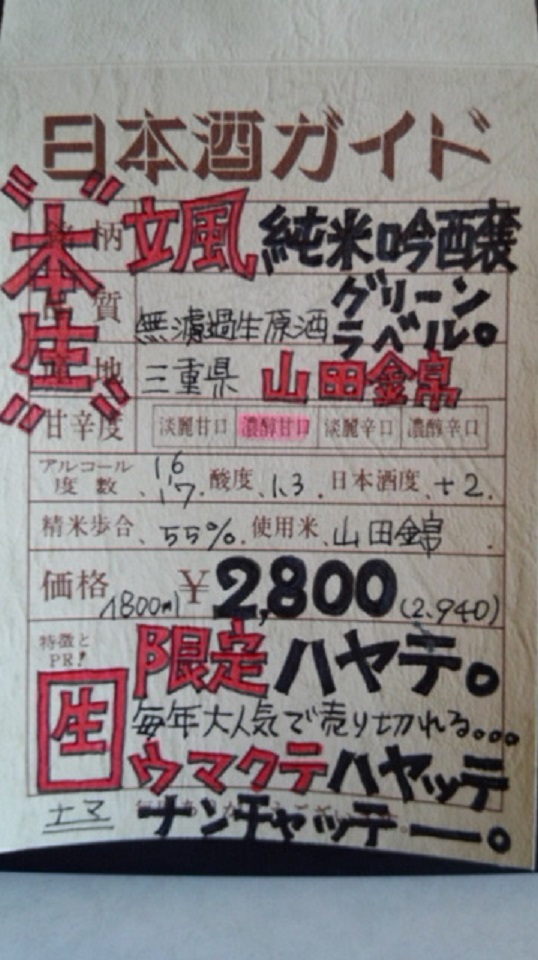 日本酒ガイド
"本生"
柄 颯 純米吟醸
質 無濾過生原酒 グリーン
ラベル。
地 三重県 山田錦
甘辛度 淡麗甘口 濃醇甘口 淡麗辛口 濃醇辛口
アルコール度数、16、17. 酸度、1.3. 日本酒度、+2.
精米歩合、55%. 使用米、山田錦.
価格 1800ml ¥2,800(2.940)
特徴とPR! 限定ハヤテ。
生 毎年大人気で売り切れる。。。
ウマクテハヤッテ
ナンチャッテー。